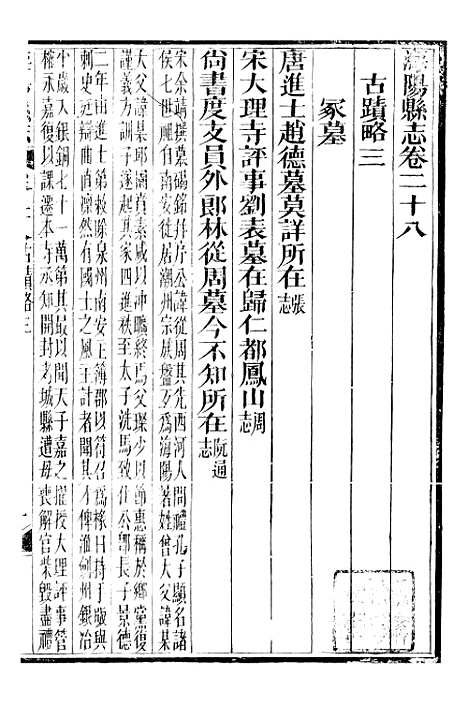 海陽縣志卷二十八
古蹟略三
冢墓
唐進士趙德墓莫詳所在張志
宋大理寺評事劉表墓在歸仁都鳳山周志
尙書度支員外郎林從周墓今不知所在阮通志
宋余靖撰墓碣銘幷序公諱從周其先西河人問禮孔子顯名諸
侯後七世有南安徒居潮州族盤互爲海陽著姓曾大父諱某
大父諱某邱園賁素咸以沖曠終焉父璨少以節惠稱於鄉黨復
謹義方訓子遂起其家四進秩至太子洗馬致仕公郎長子景德
二年由進士第敕除泉州南安主簿郡以符召爲掾日持手版與
刺史延辯曲直凜然有國士之風主計者聞其才俾滌劍州銀冶
半歲入銀銅七十一萬第其最以聞天子嘉之擢授大理評事管
榷永嘉復以課遷本寺丞知開封考城縣遭母喪解官柴毀盡禮